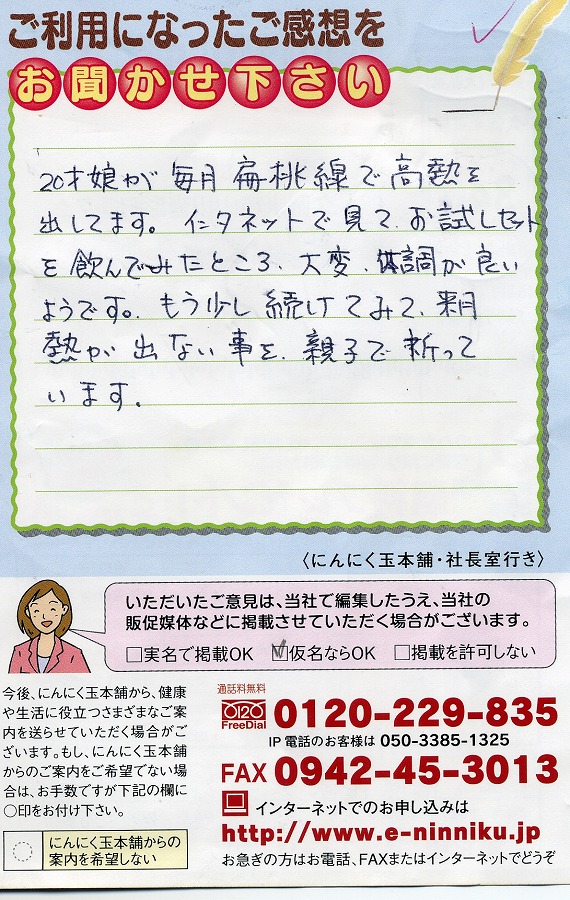 ご利用になったご感想を
お聞かせ下さい
20才娘が 毎月 扁桃線で高熱を
出してます。インタネットで見て、お試しセット
を飲んでみたところ、大変、体調が良い
ようです。もう少し続けてみて、来月
熱が出ない事を、親子で祈って
います。
〈にんにく玉本舗・社長室行き〉
いただいたご意見は、当社で編集したうえ、当社の
販促媒体などに掲載させていただく場合がございます。
□実名で掲載OK ☑仮名ならOK □掲載を許可しない
今後、にんにく玉本舗から、健康
や生活に役立つさまざまなご案
内を送らせていただく場合がご
ざいます。もし、にんにく玉本舗
からのご案内をご希望でない場
合は、お手数ですが下記の欄に
○印をお付け下さい。
にんにく玉本舗からの
案内を希望しない
通話料無料
0120 FreeDial 0120-229-835
IP電話のお客様は 050-3385-1325
FAX 0942-45-3013
インターネットでのお申し込みは
http://www.e-ninniku.jp
お急ぎの方はお電話、FAXまたはインターネットでどうぞ